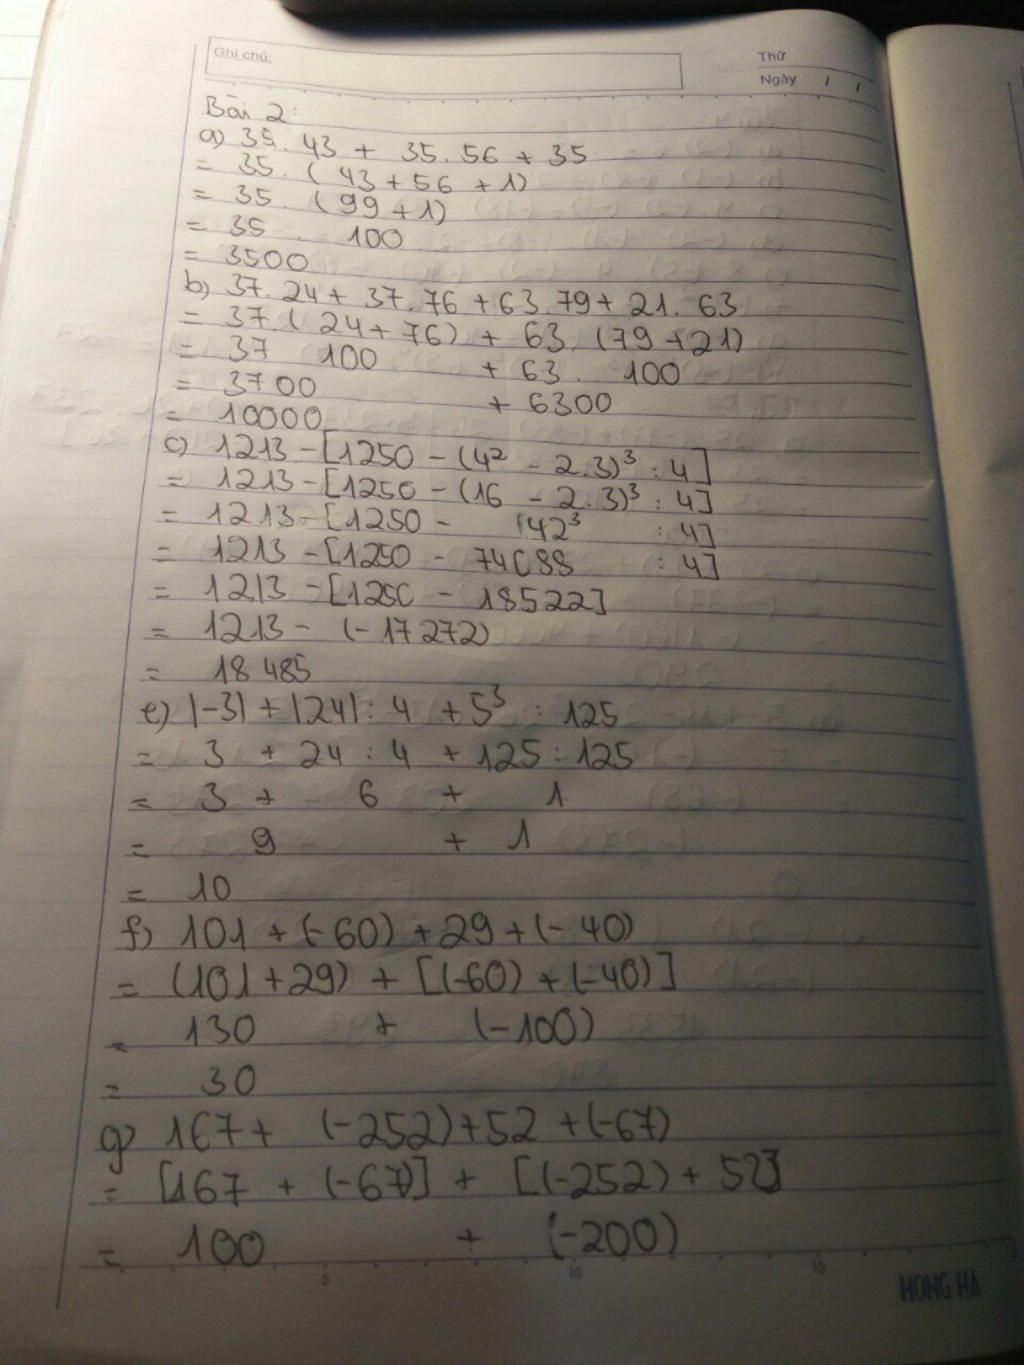 Ghi chú:
Thứ
Ngày / /
Bài 2:
a) 35. 43 + 35. 56 + 35
= 35. ( 43 + 56 + 1)
= 35. (99 + 1)
= 35 . 100
= 3500
b) 37. 24 + 37. 76 + 63. 79 + 21. 63
= 37. ( 24 + 76) + 63. (79 + 21)
= 37 100 + 63. 100
= 3700 + 6300
= 10000
c) 1213 - [1250 - (4² - 2.3)³ : 4]
= 1213 - [1250 - (16 - 2.3)³ : 4]
= 1213 - [1250 - 42³ : 4]
= 1213 - [1250 - 74088 : 4]
= 1213 - [1250 - 18522]
= 1213 - (-17272)
= 18 485
e) |-3| + |24| : 4 + 5³ : 125
= 3 + 24 : 4 + 125 : 125
= 3 + 6 + 1
= 9 + 1
= 10
f) 101 + (-60) + 29 + (- 40)
= (101 + 29) + [(-60) + (-40)]
= 130 + (-100)
= 30
g) 167 + (-252) + 52 + (-67)
= [167 + (-67)] + [(-252) + 52]
= 100 + (-200)
5 10 15
HONG HA